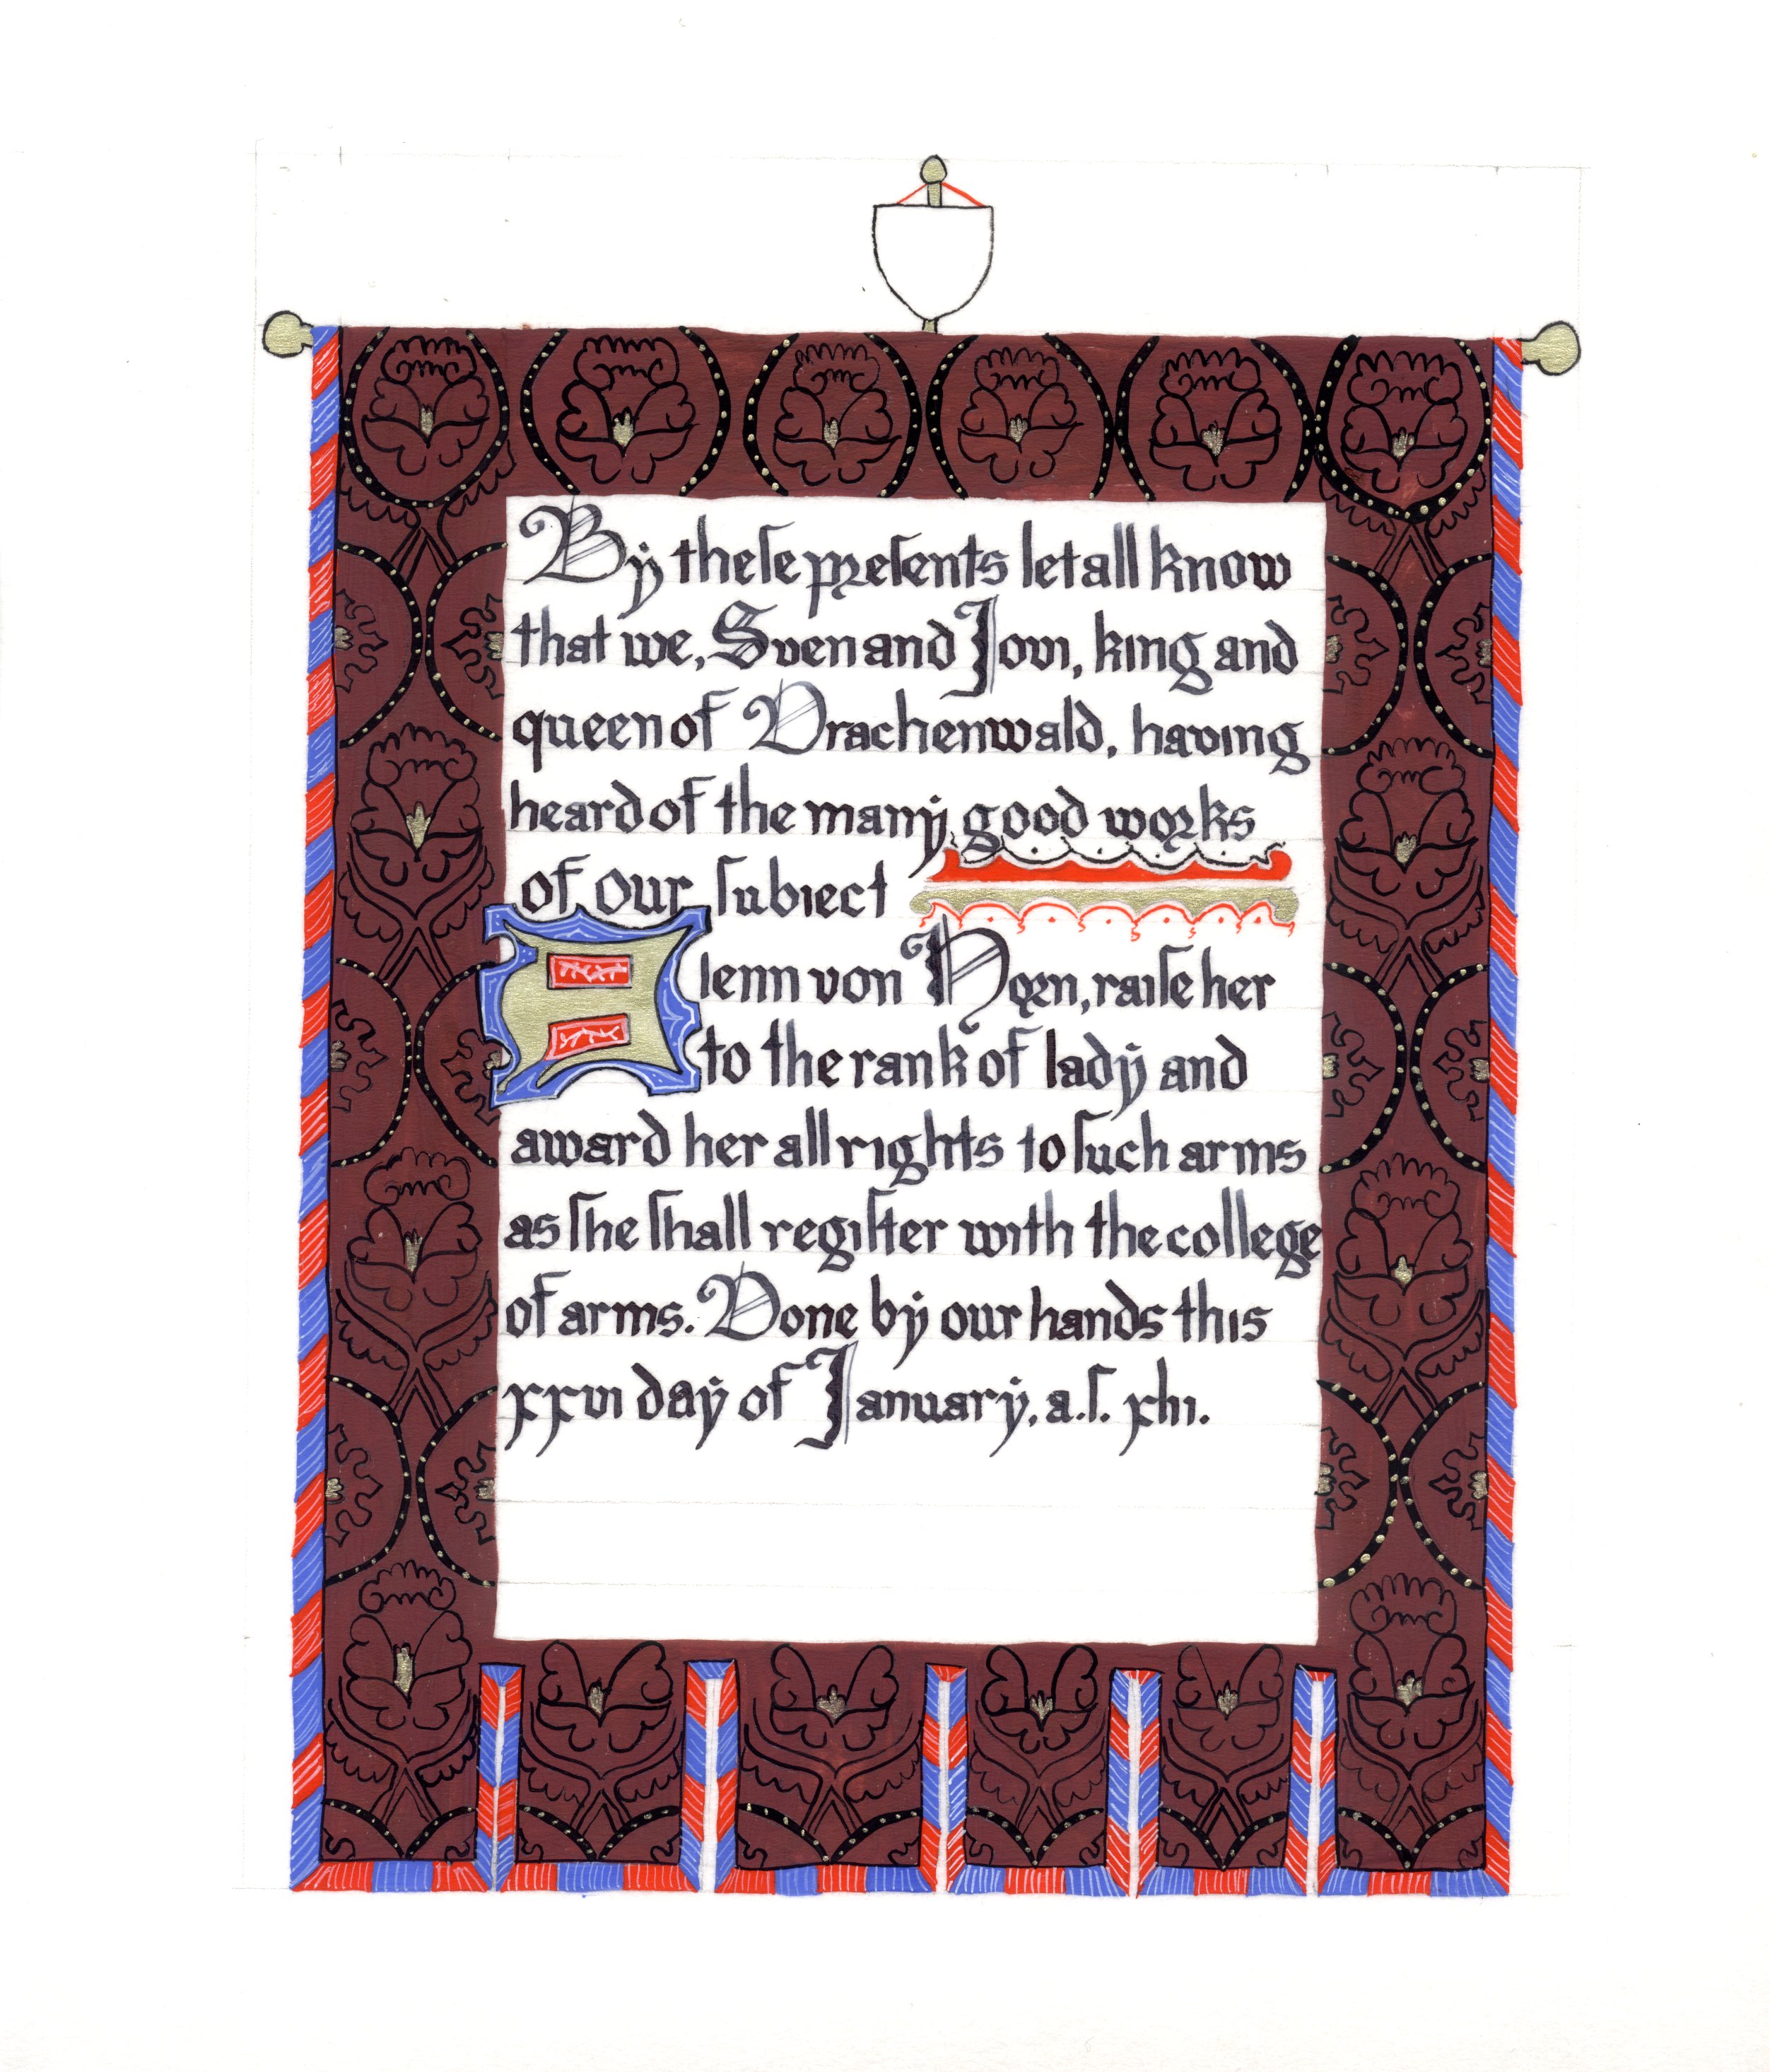 By theſe preſents let all know
that we, Sven and Jovi, king and
queen of Drachenwald, having
heard of the many good works
of our ſubiect
Aienn von Horn, raiſe her
to the rank of lady and
award her all rights to ſuch arms
as ſhe ſhall regiſter with the college
of arms. Done by our hands this
xxvi day of January, a.ſ. xlii.